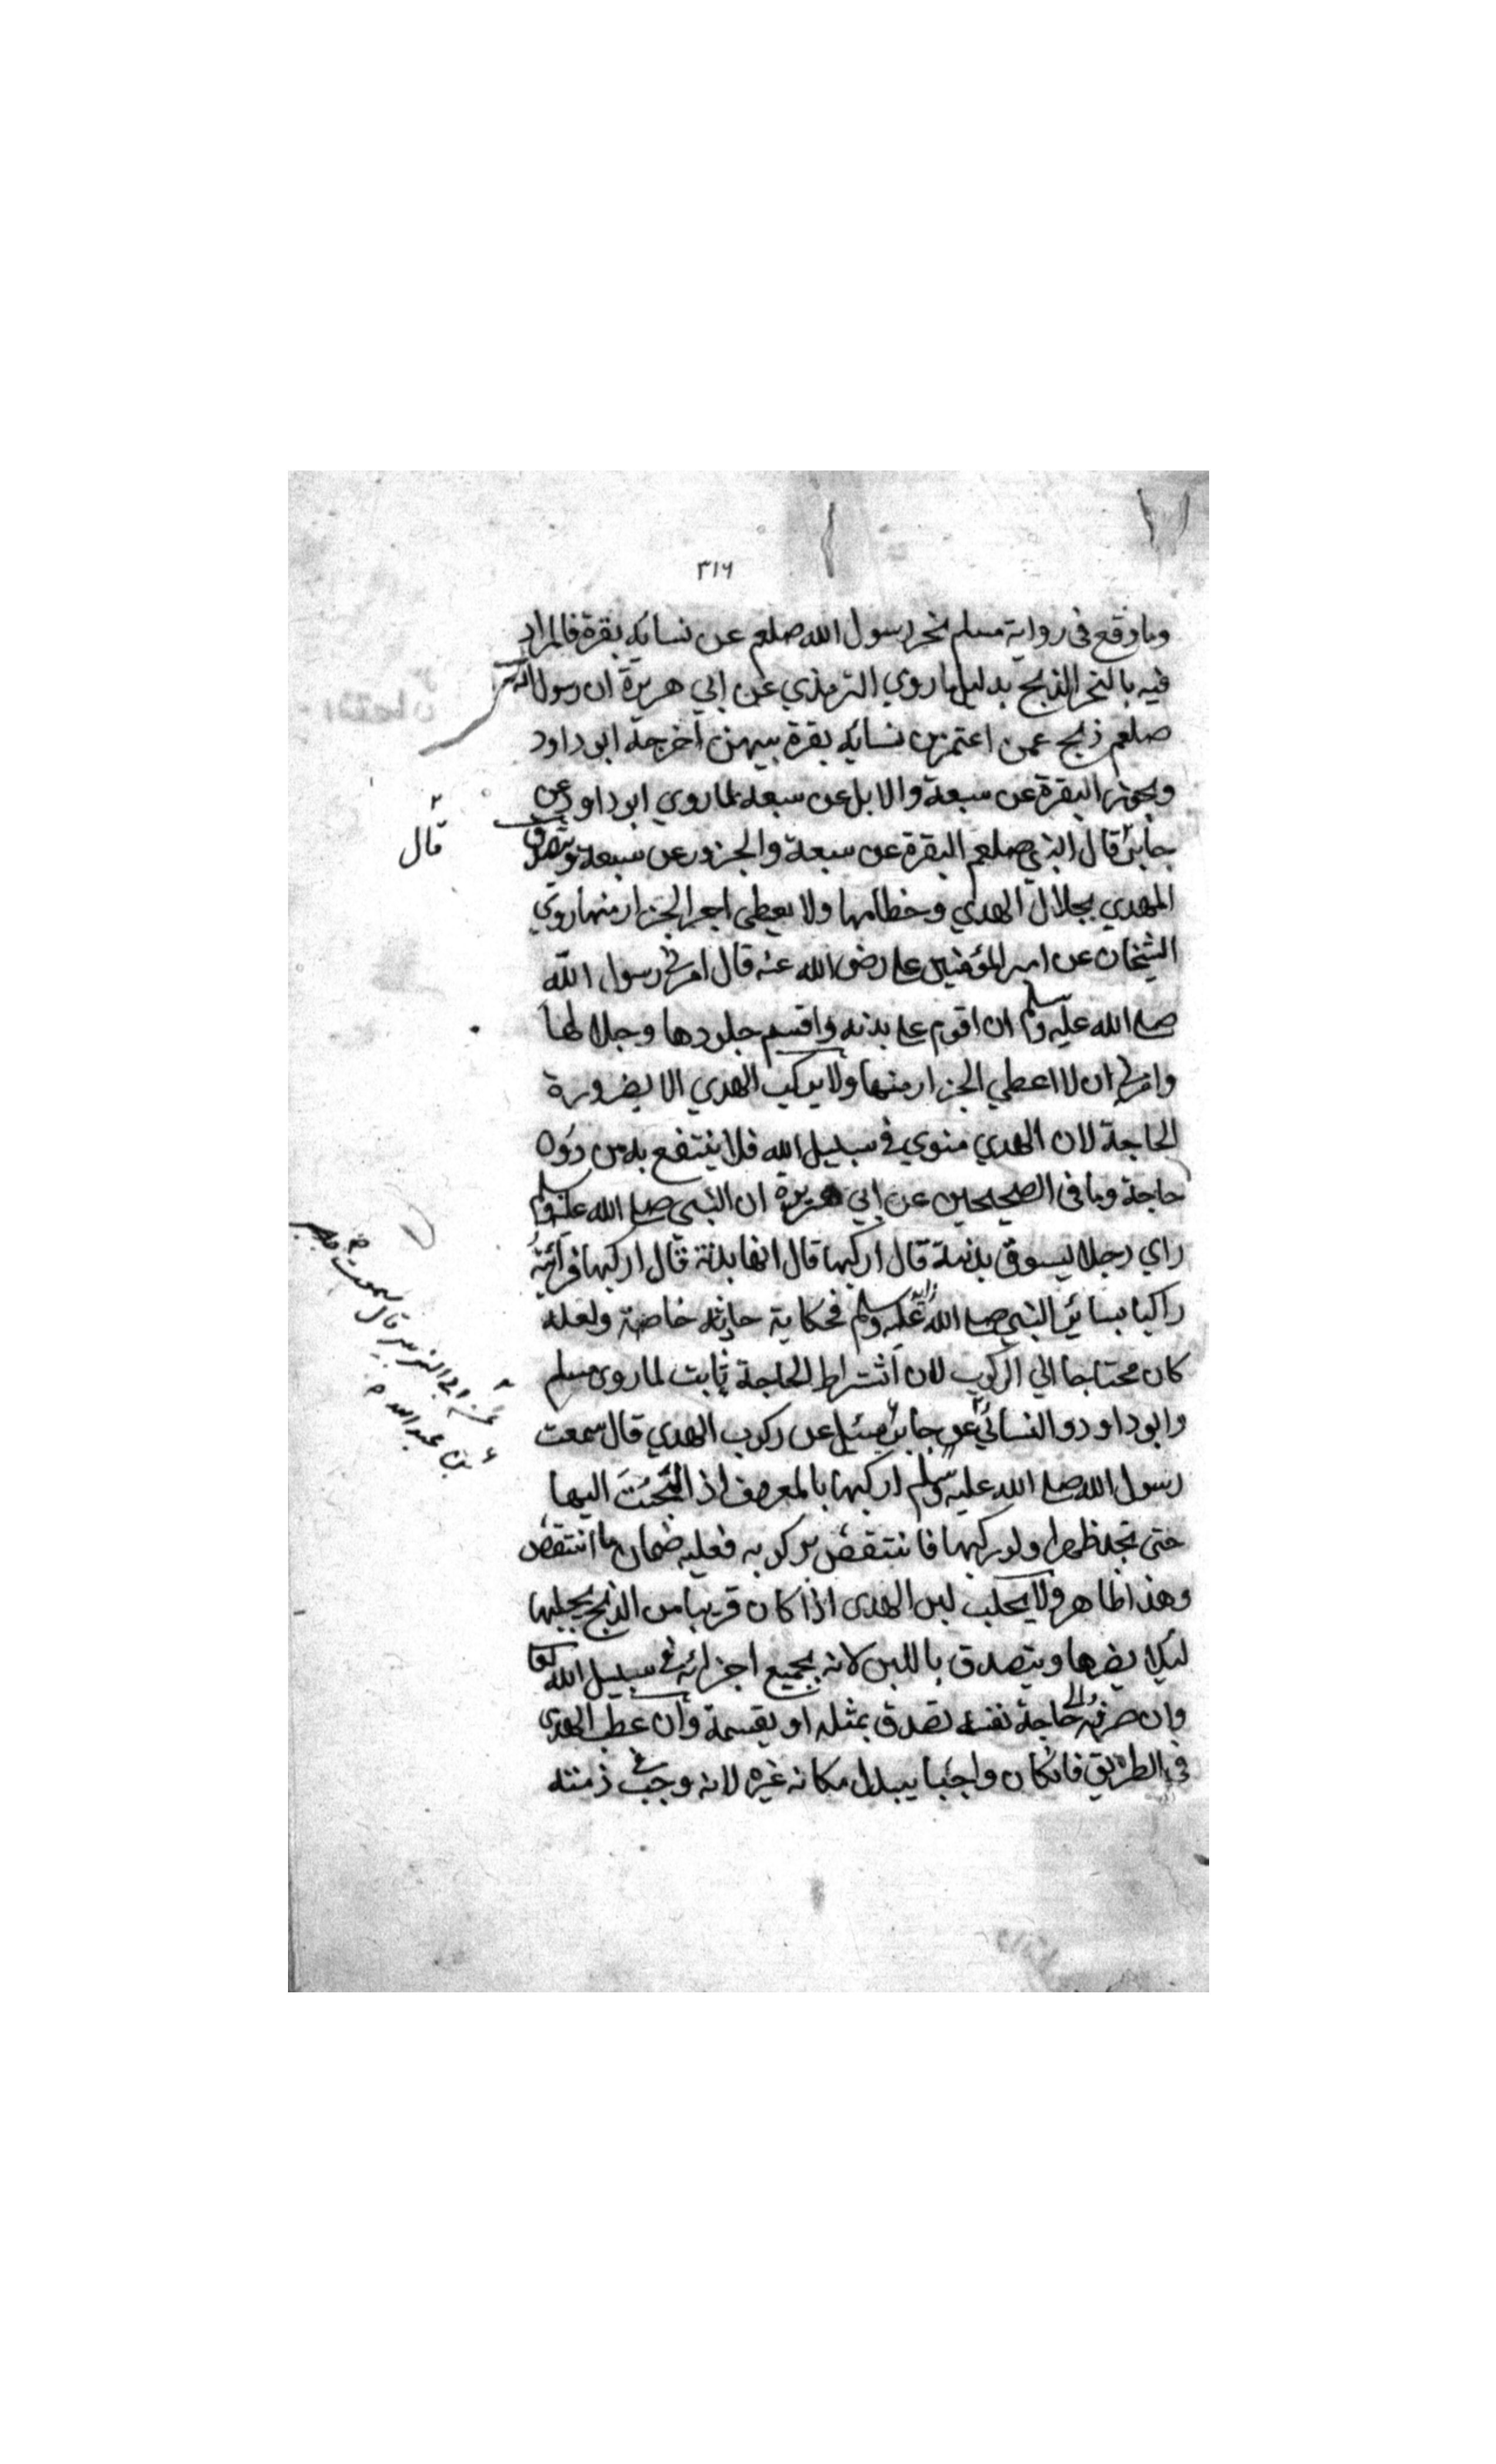 ٣١٦
وما وقع في رواية مسلم نحر رسول الله صلعم عن نسائه بقرة فالمراد
فيه بالنحر الذبح بدليل ما روي الترمذي عن ابي هريرة ان رسول الله
صلعم ذبح عمن اعتمر من نسائه بقرة بينهن اخرجه ابو داود
ويجوز البقرة عن سبعة والابل عن سبعة لما روي ابو داود عن
جابر قال النبي صلعم البقرة عن سبعة والجزور عن سبعة ويتصدق
المهدي بجلال الهدي وخطامها ولا يعطي اجر الجزار منها روي
الشيخان عن امير المؤمنين علي رضي الله عنه قال امرني رسول الله
صلى الله عليه وسلم ان اقوم على بدنه واقسم جلودها وجلالها
وامرني ان لا اعطي الجزار منها ولا يركب الهدي الا بضرورة
الحاجة لان الهدي منوي في سبيل الله فلا ينتفع به من دون
حاجة وما في الصحيحين عن ابي هريرة ان النبي صلى الله عليه وسلم
راي رجلا يسوق بدنة قال اركبها قال انها بدنة قال اركبها فرأيته
راكبا يساير النبي صلى الله عليه وسلم فحكاية حادثة خاصة ولعله
كان محتاجا الي الركوب لان اشتراط الحاجة ثابت لما روى مسلم
وابو داود والنسائي عن جابر سئل عن ركوب الهدي قال سمعت
رسول الله صلى الله عليه وسلم اركبها بالمعروف اذا الجئت اليها
حتى تجد ظهرا ولو ركبها فانتقض بركوبه فعليه ضمان ما انتقض
وهذا ظاهر ولا يحلب لبن الهدى اذا كان قريبا من الذبح يحلبها
لئلا يضرها ويتصدق باللبن لانه بجميع اجزائه في سبيل الله
وان صرفه الى حاجة نفسه تصدق بمثله او بقيمته وان عطب الهدى
في الطريق فان كان واجبا يبدل مكانه غيره لانه وجب في ذمته
قال
عن ابي الزبير قال سمعت
بن عبد الله